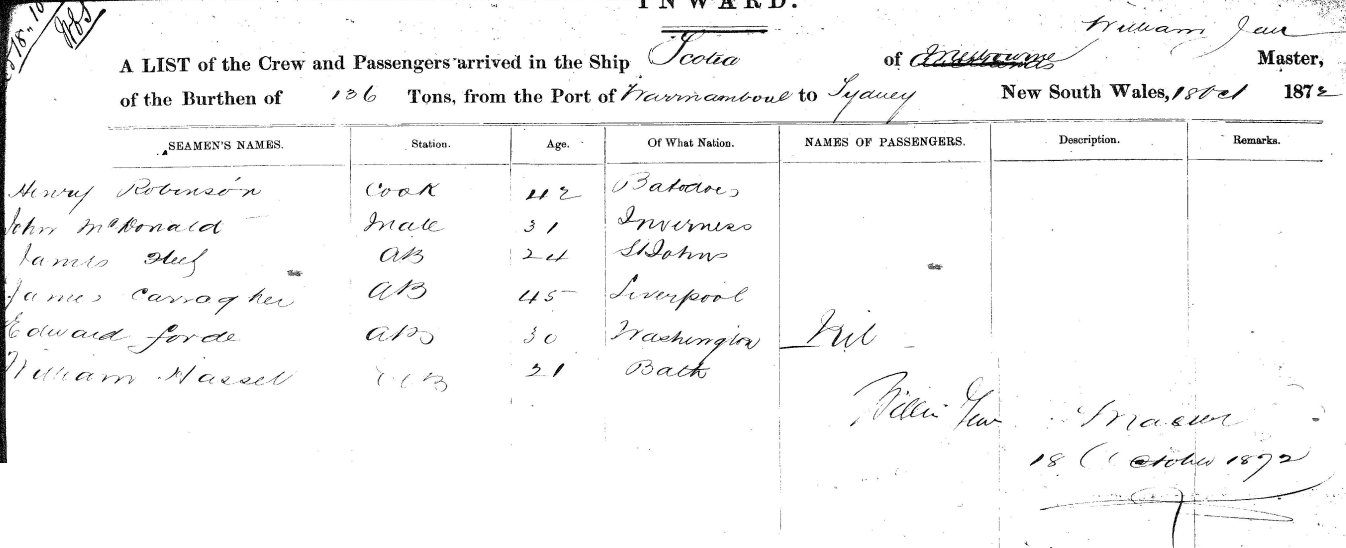 INWARD.
William
A LIST of the Crew and Passengers arrived in the Ship Scotia of Master,
of the Burthen of 136 Tons, from the Port of Warrnamboul to Sydney New South Wales, 18 Oct 1872
SEAMEN'S NAMES. Station. Age. Of What Nation. NAMES OF PASSENGERS. Description. Remarks.
Henry Robinson Cook 42 Batodoes
John McDonald Mate 31 Inverness
James AB 24 St Johns
James Carragher AB 45 Liverpool
Edward Forde AB 30 Washington Nil
William Hassel AB 21 Bath
Master
18 October 1872